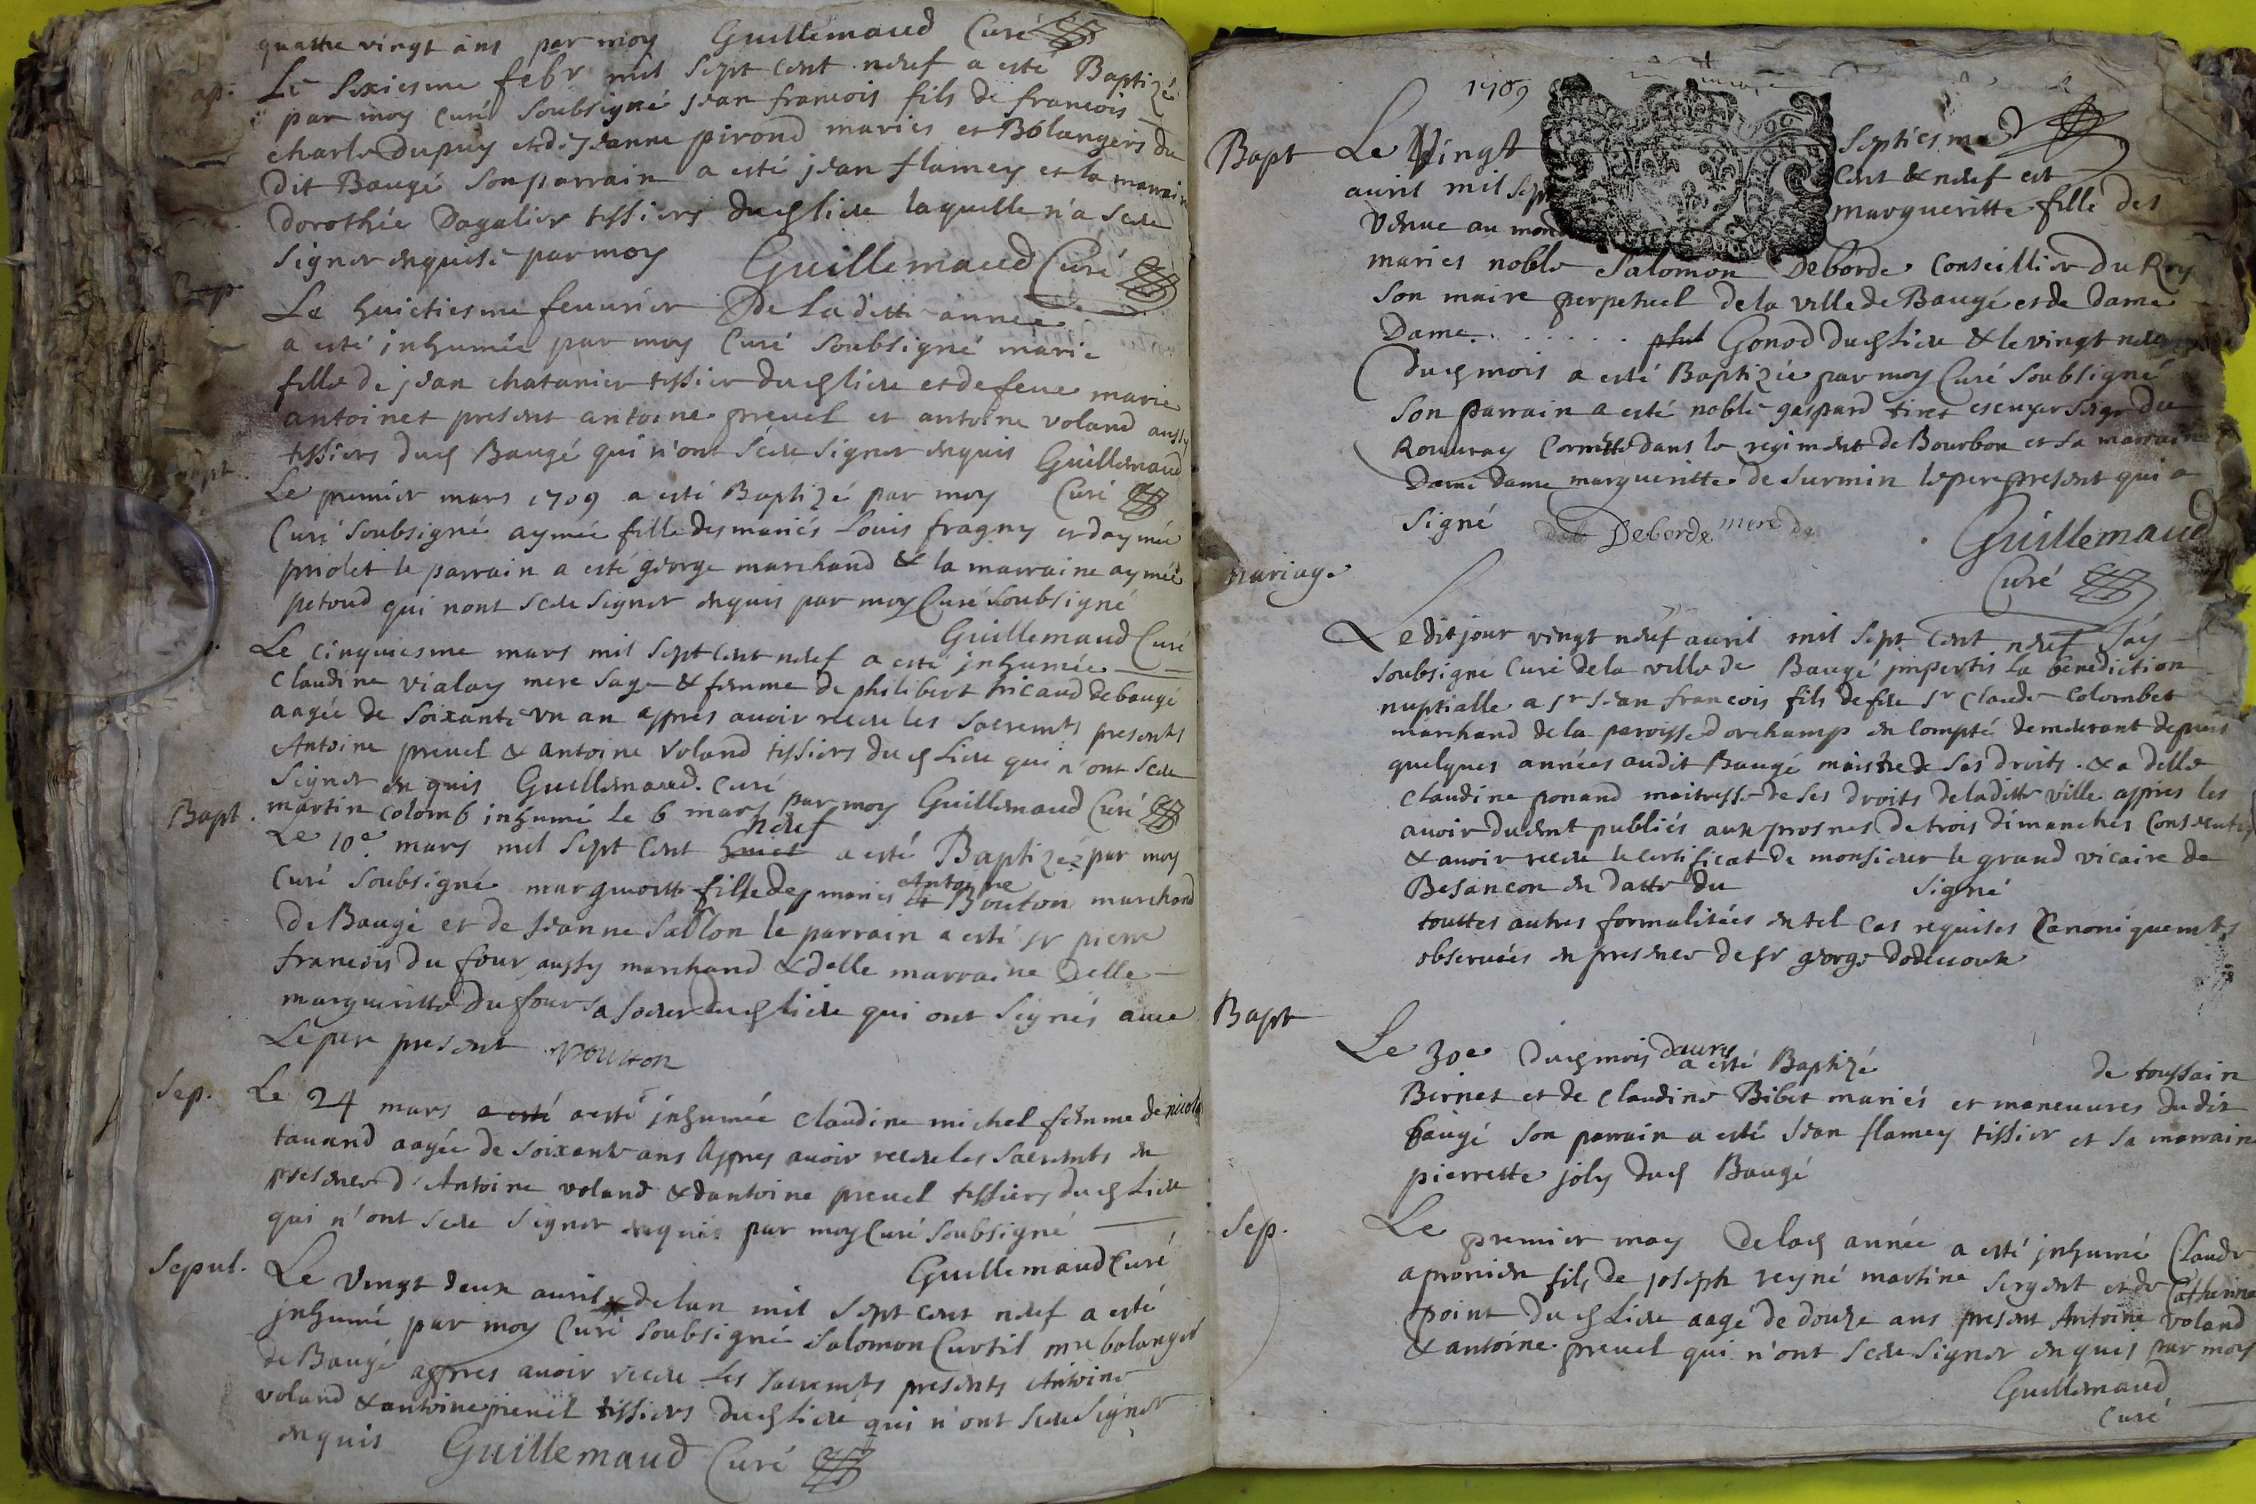 quattre vingt ans par moy Guillemaud Curé
Le sixiesme febr mil sept cent neuf a esté Baptizé
par moy Curé soubsigné jean francois fils de francois
charle Dupuy et de Jeanne pirond mariés et Bolangers du
dit Baugé son parrain a esté jean flamey et la marraine
dorothée Dagalier tissiers dud lieu laquelle n'a sceu
signer enquise par moy Guillemaud Curé
Le huictiesme feuurier De laditte année
a esté inhumée par moy Curé soubsigné marie
fille de jean chatanier tissier dud lieu et de feue marie
antoinet present antoine preuel et antoine voland aussy
tissiers dud Baugé qui n'ont sceu signer enquis Guillemaud
Curé
Le premier mars 1709 a esté Baptizé par moy
Curé soubsigné aymée fille des mariés Louis fragny et daymée
priolet le parrain a esté george marchand & la marraine aymée
petoud qui nont sceu signer enquis par moy Curé soubsigné
Guillemaud Curé
Le cinquiesme mars mil sept cent neuf a esté inhumée
Claudine vialay mere sage & femme de philibert tricaud de baugé
aagée de soixante vn an appres auoir receu les sacremts presents
Antoine preuel & antoine voland tissiers dud Lieu qui n'ont sceu
signer enquis Guillemaud. Curé
martin colomb inhumé le 6 mars par moy Guillemaud Curé
Bapt.
Le 10e mars mil sept cent huict neuf a esté Baptizée par moy
Curé soubsigné margueritte fille des mariés Antoine Bouton marchand
de Baugé et de Jeanne Sablon le parrain a esté sr pierre
francois du four aussy marchand & delle marraine Delle
margueritte Dufour sa soeur dud lieu qui ont signés auec
Le pere present Voutton
Sep.
Le 24 mars a esté a esté inhumée claudine michel femme de nicolas
tauand aagée de soixante ans appres auoir receu les sacremts en
presence d'Antoine voland & dantoine preuel tissiers dud Lieu
qui n'ont sceu signer enquis par moy Curé soubsigné
Guillemaud Curé
Sepul.
Le vingt deux auril de lan mil sept cent neuf a esté
inhumé par moy Curé soubsigné Salomon Curtil mre bolanger
de Baugé appres auoir receu les sacremts presents Antoine
voland & antoine preuel tissiers dud lieu qui n'ont sceu signer
enquis Guillemaud Curé
1709
Bapt
Le vingt septiesme
auril mil sept cent & neuf est
venue au monde margueritte fille des
mariés noble Salomon Deborde Conseillier du Roy
son maire perpetuel de la ville de Baugé et de dame
Dame Gonod dud lieu & le vingt neuf
dud mois a esté Baptizée par moy Curé soubsigné
son parrain a esté noble gaspard tiret escuyer seigr du
Rouuray Cornette dans le regiment de Bourbon et la marraine
Dame Dame margueritte de surmin le pere present qui a
signé Deborde mere de
Guillemaud
Curé
mariage
Ledit jour vingt neuf auril mil sept cent neuf jay
soubsigne Curé de la ville de Baugé jmpertis la benediction
nuptialle a sr jean francois fils de feu sr Claude Colombet
marchand de la paroisse dorchamp en Compté demeurant depuis
quelques années audit Baugé maistre de ses droits. & a delle
Claudine ponand maitresse de ses droits de laditte ville appres les
auoir duemt publiés aux prosnes de trois dimanches consecutifs
& auoir receu le certificat de monsieur le grand vicaire de
Besancon en datte du signé
touttes autres formalitées en tel cas requises canoniquemts
obseruées en presence de sr george dodeuoux
Bapt
Le 30e dud mois dauril a esté Baptizé de toussain
Bernet et de claudine Bibet mariés et maneuures dudit
baugé son parrain a esté jean flamey tissier et sa marraine
pierrette joly dud Baugé
Sep.
Le premier may de lad année a esté inhumé Claude
apronien fils de joseph reyné martine sergent et de Catherine
point dud Lieu aagé de douze ans present Antoine voland
& antoine preuel qui n'ont sceu signer enquis par moy
Guillemaud
Curé